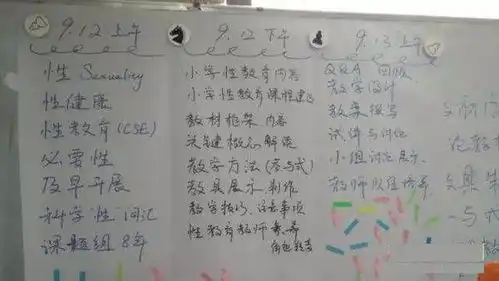 9.12 上午
性 Sexuality
性健康
性教育(CSE)
必要性
及早开展
科学性词汇
课题组 8年
9.12 下午
小学性教育内容
小学性教育课程建议
教材框架 内容
关键概念解读
教学方法(参与式)
教具展示 制作
教学技巧、注意事项
性教育教师素养
角色转变
9.13 上午
Q&A 回顾
教学设计
教案撰写
试讲与讨论
小组讨论展示
教师